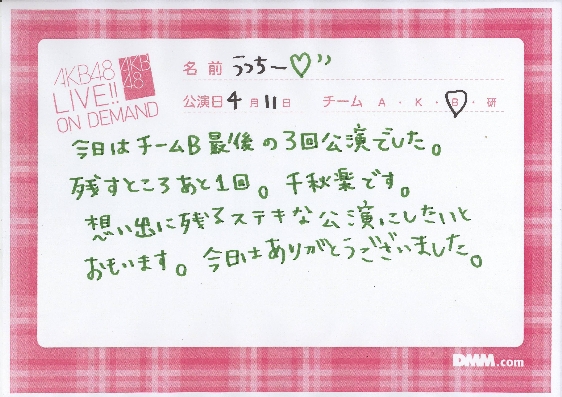 AKB48
LIVE!!
ON DEMAND
AKB
48
名前 うっちー♡"
公演日 4月11日 チーム A・K・B・研
今日はチームB最後の3回公演でした。
残すところあと1回。千秋楽です。
想い出に残るステキな公演にしたいと
おもいます。今日はありがとうございました。
DMM.com